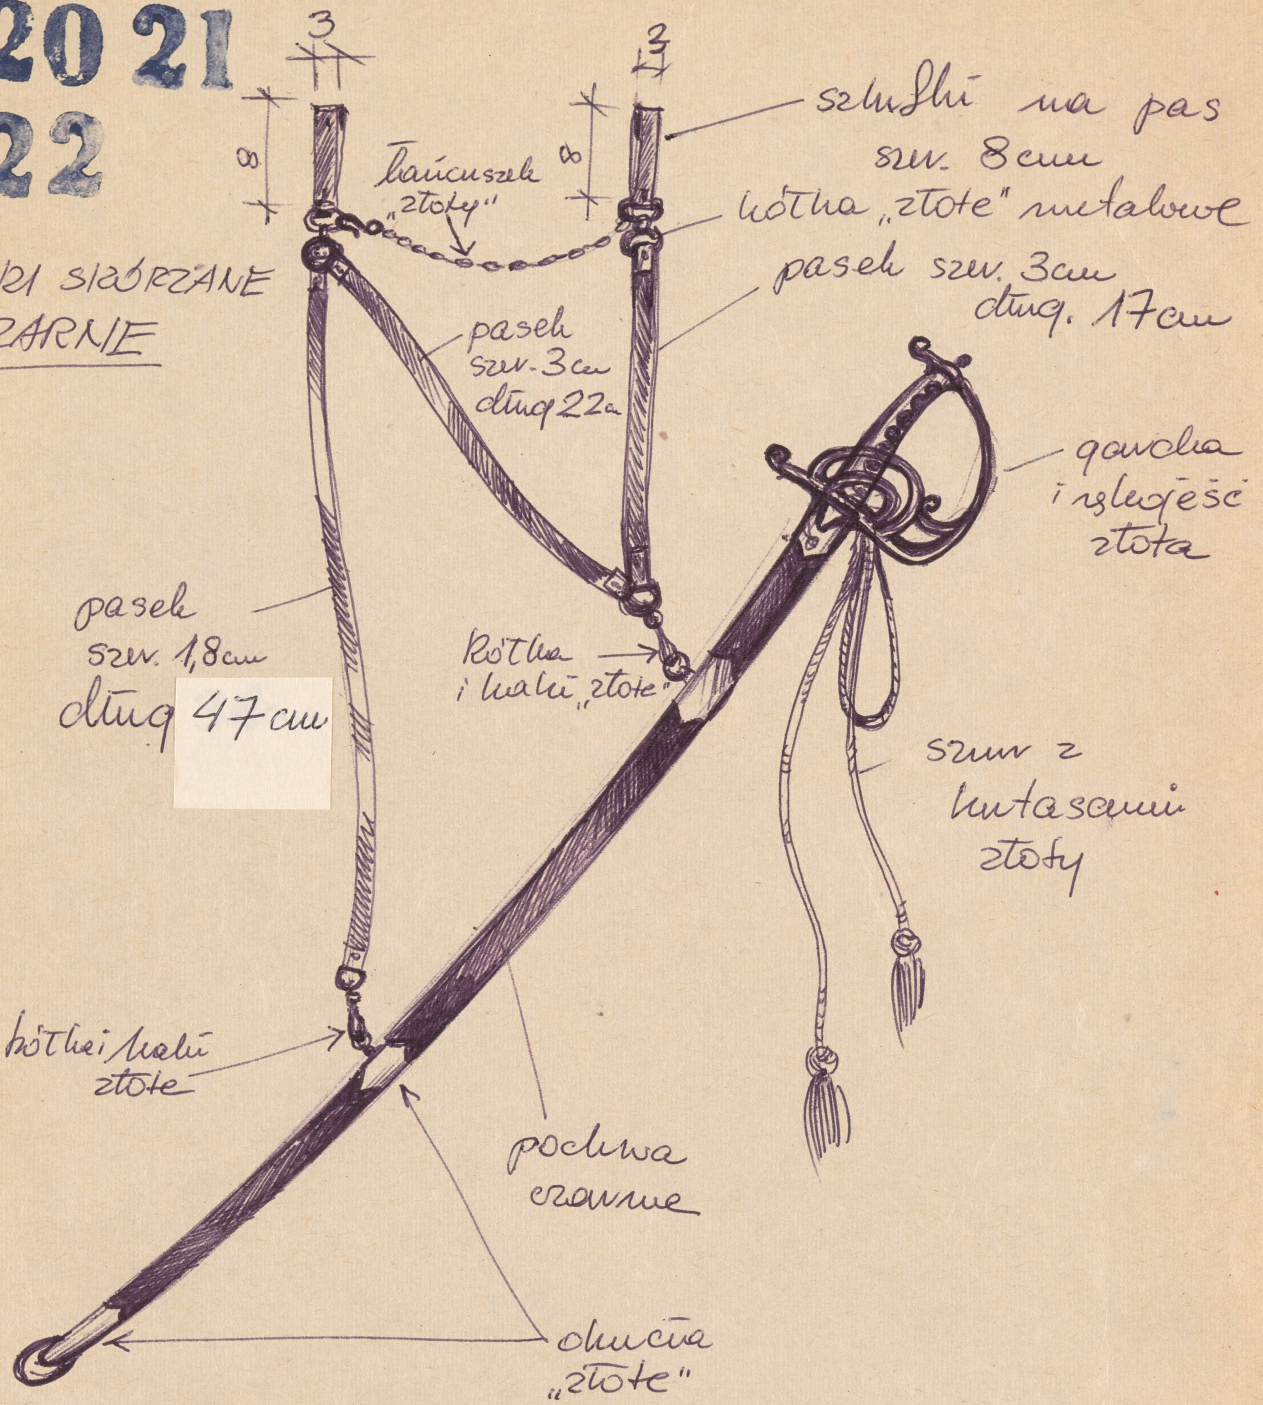 20 21
22
3
3
8
8
szlufki na pas
szer. 8cm
łańcuszek
„złoty"
kółka „złote" metalowe
SKÓRZANE
pasek szer. 3cm
dług. 17cm
pasek
szer. 3cm
dług 22c
garda
i rękojeść
złota
pasek
szer. 1,8cm
dług 47cm
kółka
i haki „złote"
sznur z
kutasami
złoty
kółka i haki
złote
pochwa
czarne
okucia
„złote"